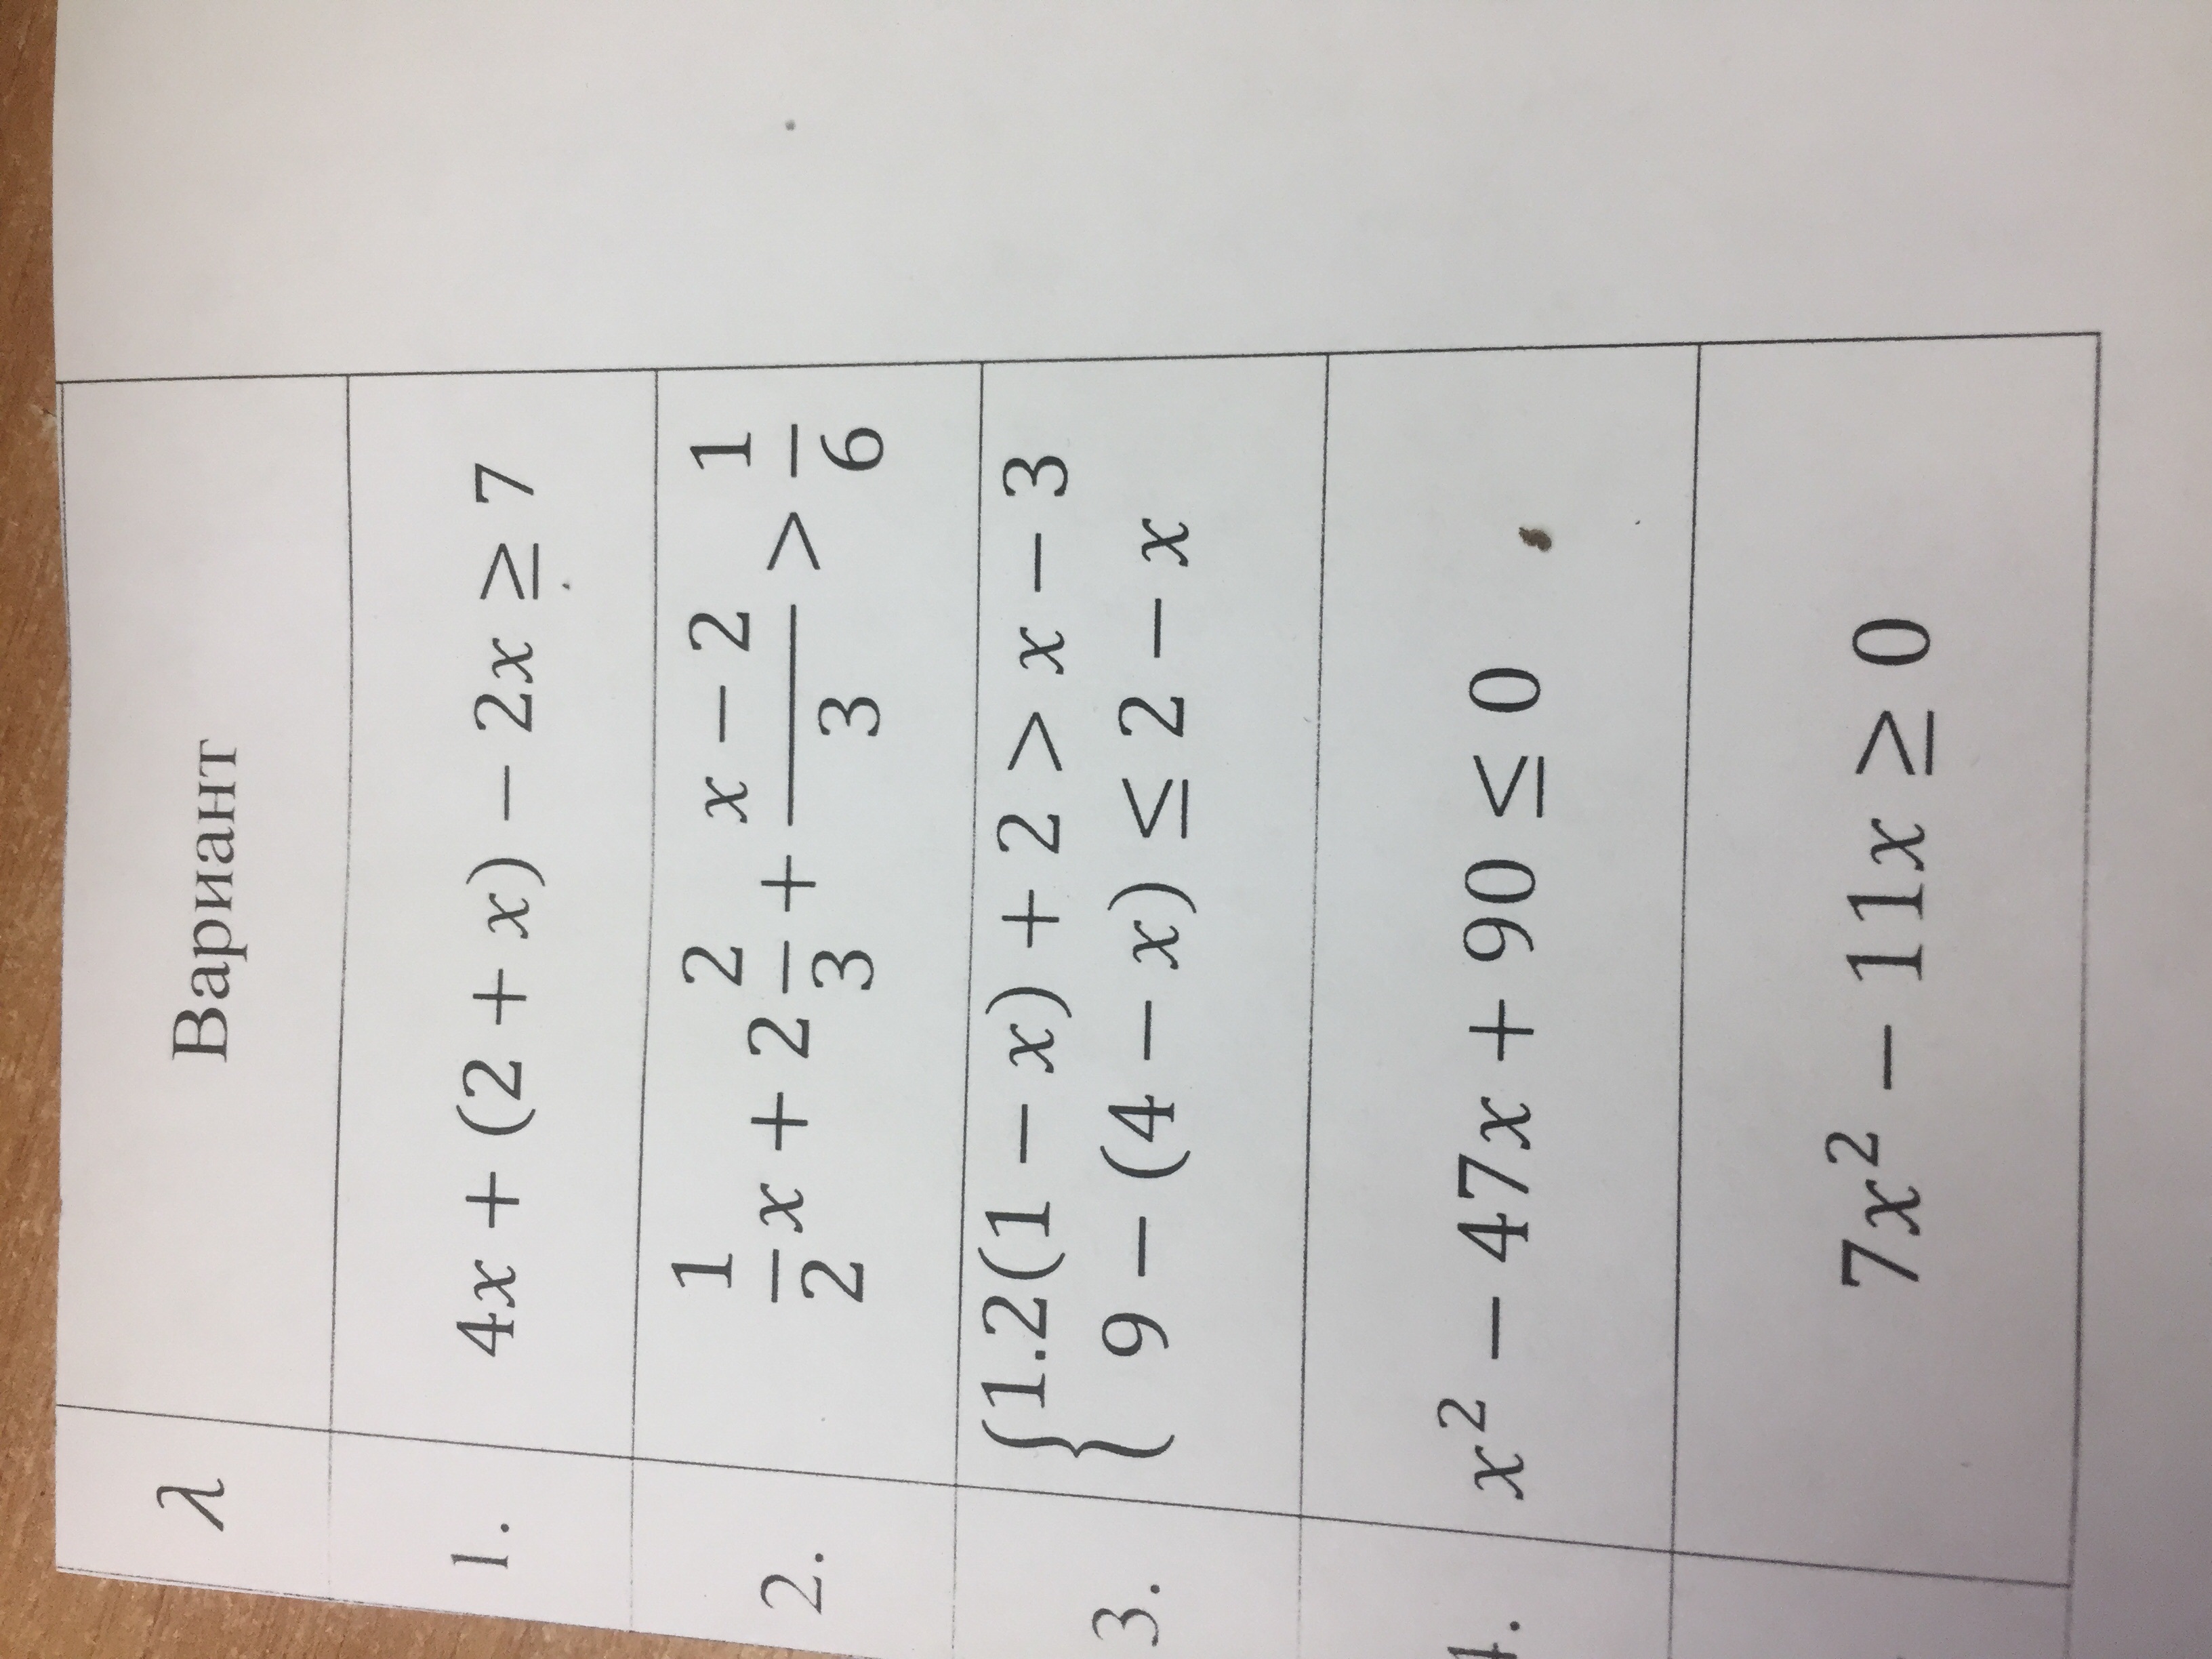 λ Вариант
1. 4x + (2 + x) − 2x ≥ 7
2. 1/2 x + 2 2/3 + (x − 2)/3 > 1/6
3. {1.2(1 − x) + 2 > x − 3
9 − (4 − x) ≤ 2 − x
4. x² − 47x + 90 ≤ 0
7x² − 11x ≥ 0